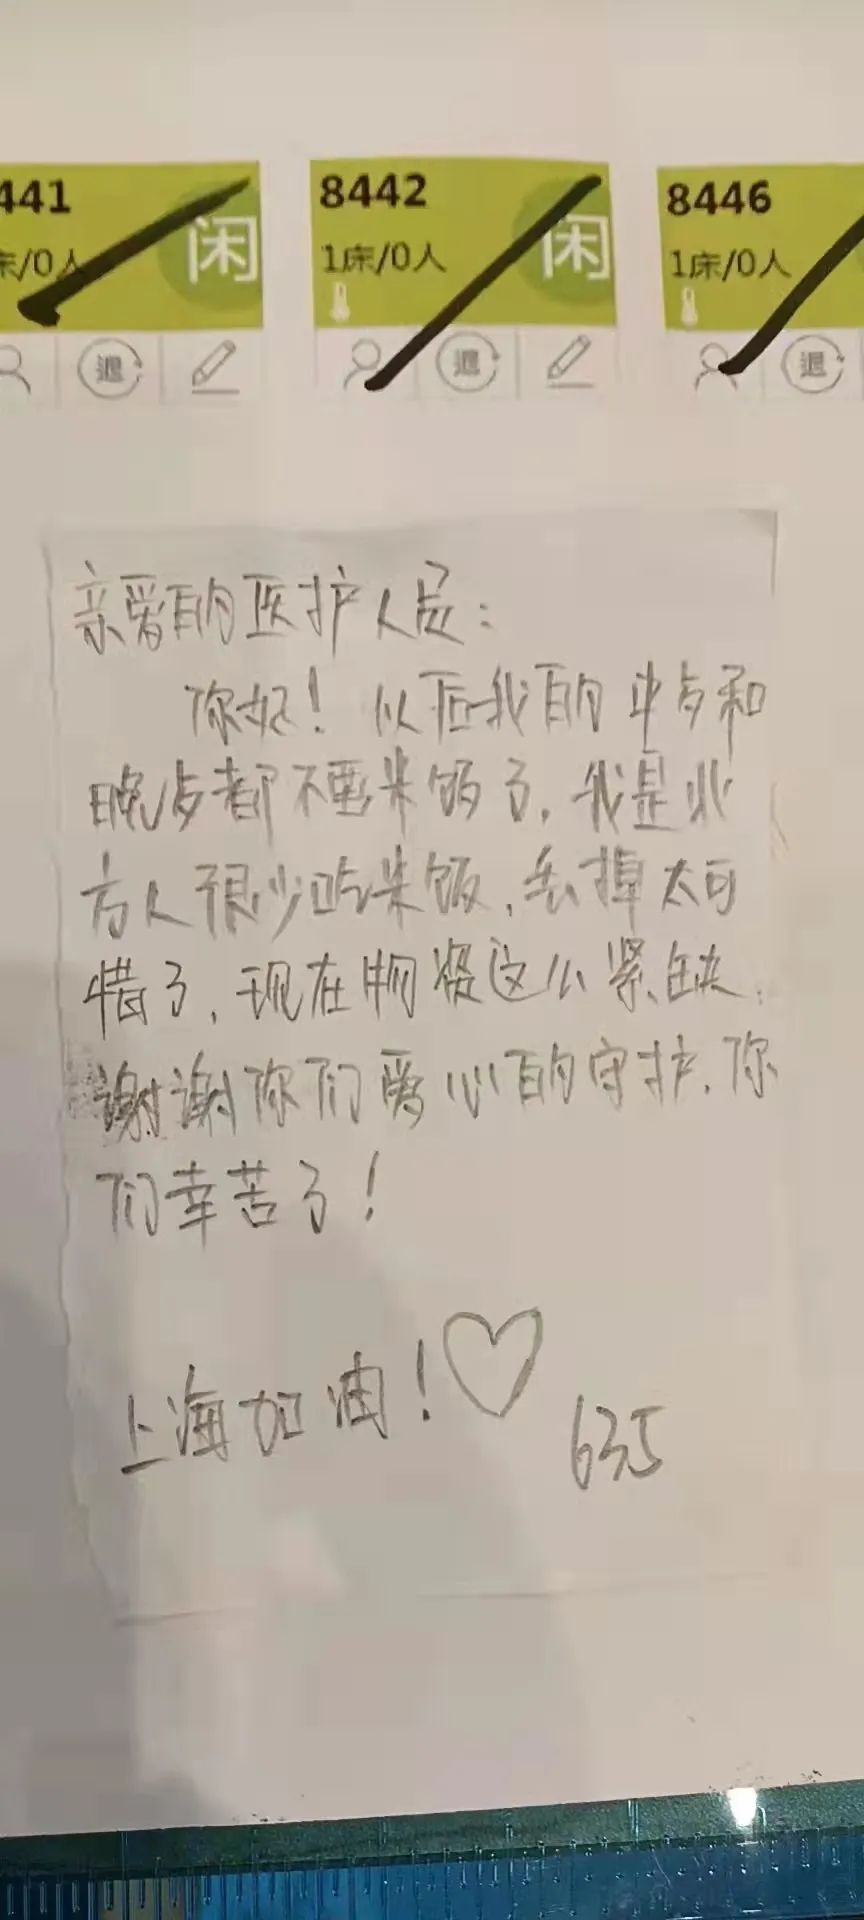 441 8442 8446
床/0人 闲 1床/0人 闲 1床/0人
退 退 退
亲爱的医护人员：
你好！以后我的中与和
晚与都不要米饭了，我是北
方人很少吃米饭，丢掉太可
惜了，现在物资这么紧缺，
谢谢你们爱心的守护，你
们幸苦了！
上海加油！
635